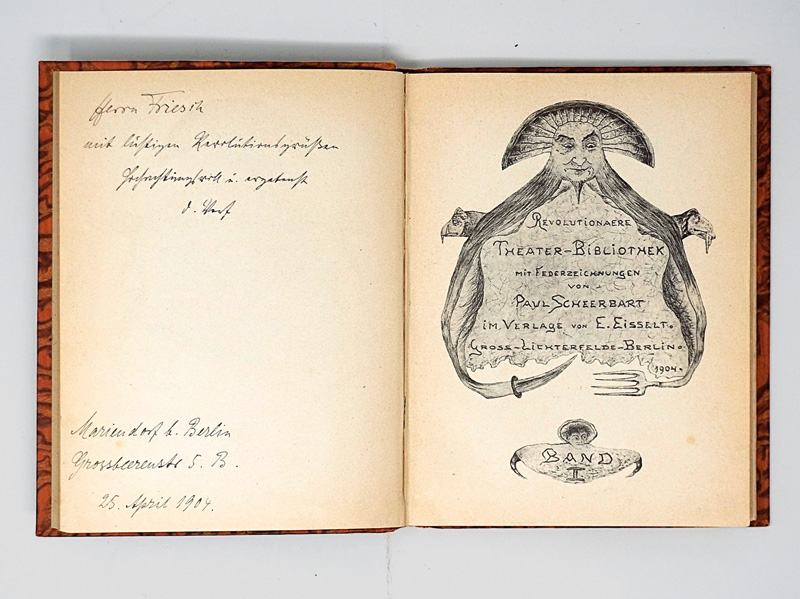 Herrn Friesch
mit lustigen Revolutionsgrüßen
hochachtungsvoll u. ergebenst
d. Verf
Mariendorf b. Berlin
Grossbeerenstr 5. B.
25. April 1904.
REVOLUTIONAERE
THEATER-BIBLIOTHEK
MIT FEDERZEICHNUNGEN
VON
PAUL SCHEERBART
IM VERLAGE VON E. EISSELT.
GROSS-LICHTERFELDE-BERLIN.
1904.
BAND
I